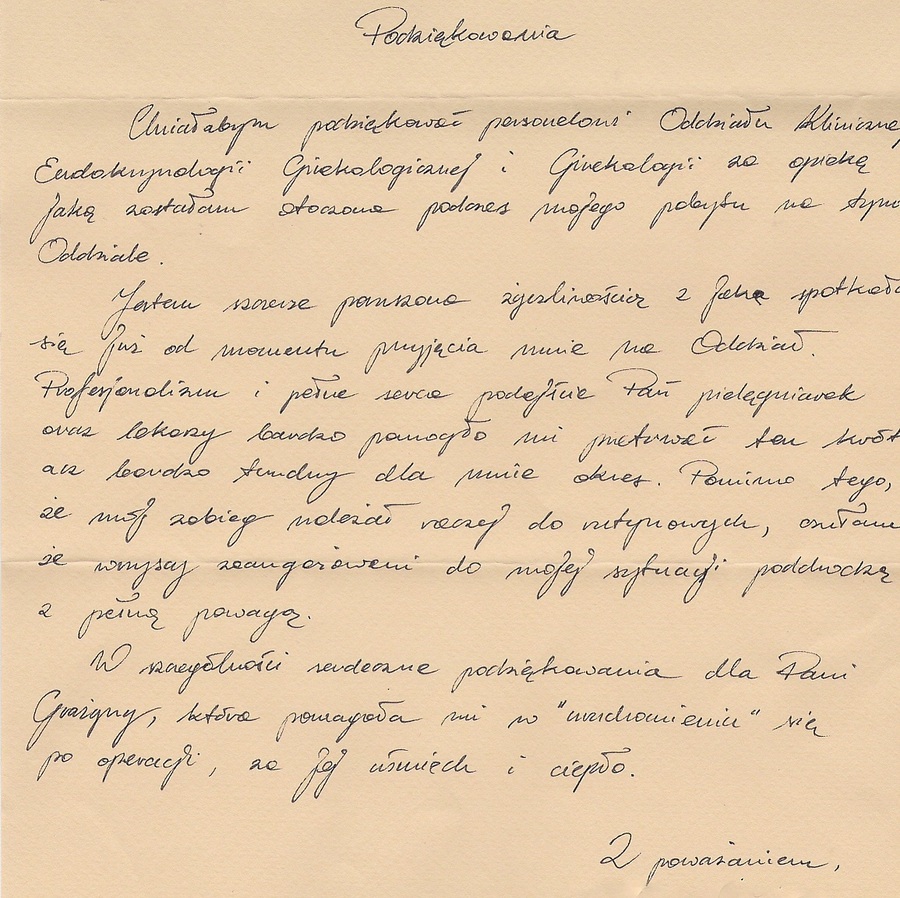 Podziękowania
Chciałabym podziękować personelowi Oddziału Kliniczneg
Endokrynologii Ginekologicznej i Ginekologii za opiekę
jaką zostałam otoczona podczas mojego pobytu na tym
Oddziale.
Jestem szczerze poruszona życzliwością z jaką spotkała
się już od momentu przyjęcia mnie na Oddział.
Profesjonalizm i pełne serca podejście Pań pielęgniarek
oraz lekarzy bardzo pomogło mi przetrwać ten krót
acz bardzo trudny dla mnie okres. Pomimo tego,
że mój zabieg należał raczej do rutynowych, czułam
że wszyscy zaangażowani do mojej sytuacji podchodzą
z pełną powagą.
W szczególności serdeczne podziękowania dla Pani
Grażyny, która pomagała mi w "uruchomieniu" się
po operacji, za jej uśmiech i ciepło.
Z poważaniem,